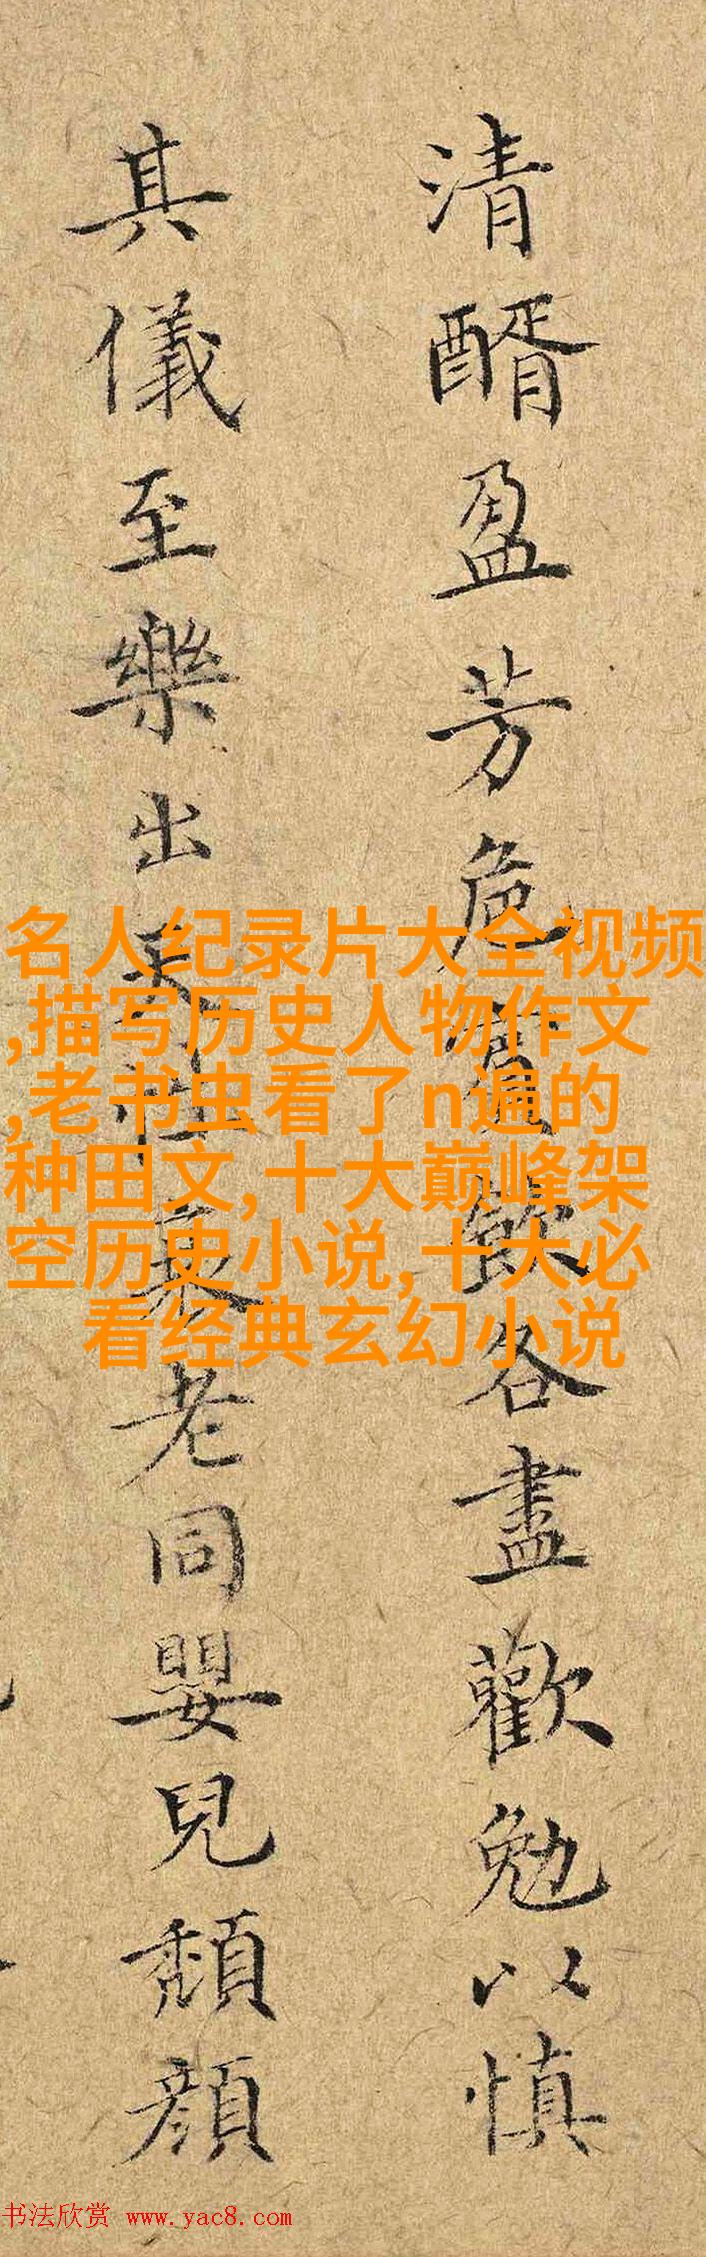 清醑盈芳卮賓飲各盡歡勉以慎
其儀至樂出天性衰老同嬰兒頹顏
名人纪录片大全视频
,描写历史人物作文
,老书虫看了n遍的
种田文,十大巅峰架
空历史小说,十大必
看经典玄幻小说
书法欣赏 www.yac8.com